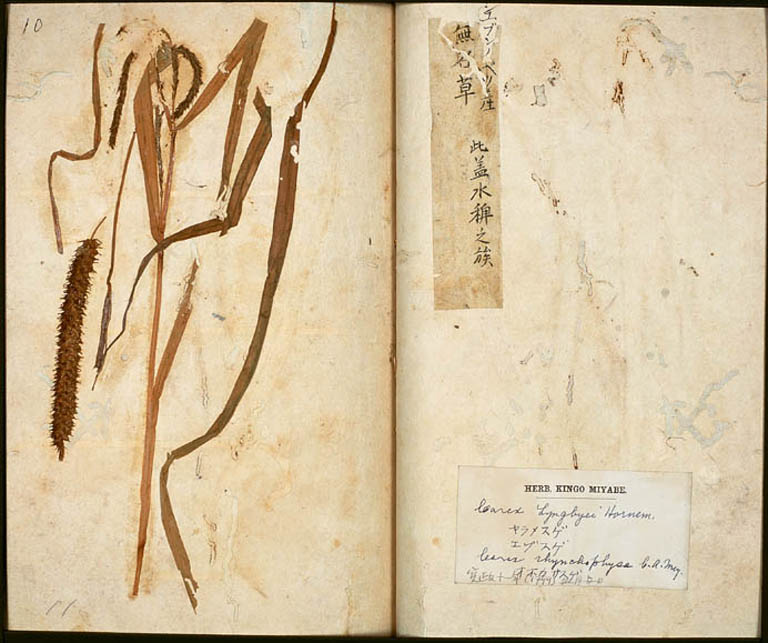 10
エブシベツ産
無名草
此蓋水稗之族
HERB. KINGO MIYABE.
Carex Lyngbyei Hornem.
ヤラメスゲ
エゾスゲ
Carex rhynchophysa C. A. Mey.
11